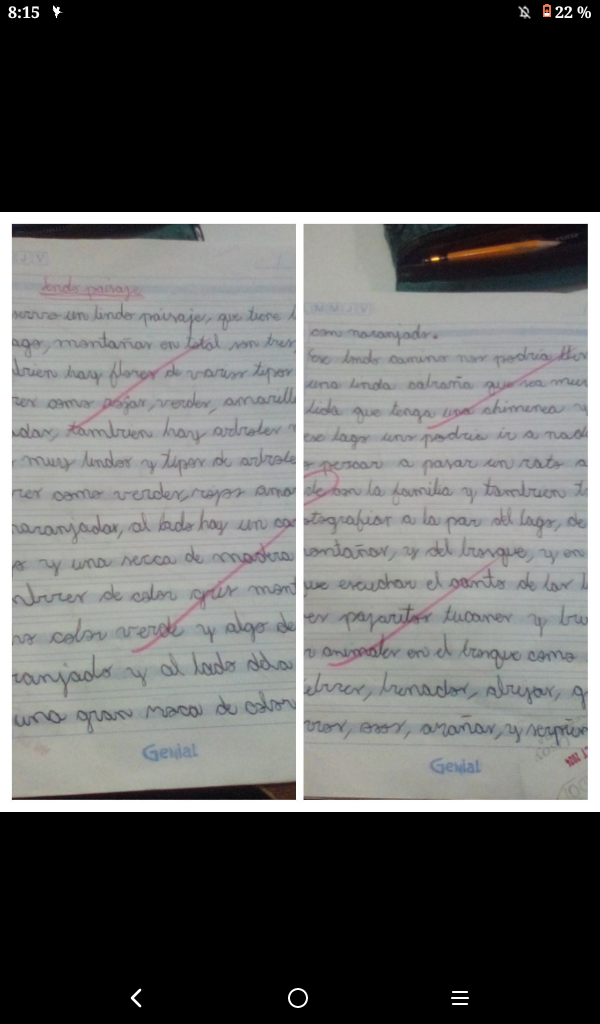 8:15
22 %
lindo paisaje
servo un lindo paisaje, que tiene
ago, montañas en total son tres
bien hay flores de varios tipos
res como rojas, verdes, amarill
das, tambien hay arboles
muy lindos y tipos de arbole
res como verdes, rojos ama
naranjadas, al lado hay un ca
o y una rocca de madera
mbres de color gris mont
no color verde y algo de
ranjado y al lado
una gran roca de color
Genial
con naranjado.
Ese lindo camino nos podria
una linda cabaña que sea muy
linda que tenga una chimenea y
ese lago uno podria ir a nad
o pescar a pasar un rato a
de con la familia y tambien t
otografiar a la par del lago, de
ontañas, y del bosque, y en
que escuchar el canto de las
es pajaritos tucanes y bu
r animales en el bosque como
ebres, benados, abejas, g
rros, osos, arañas, y serpien
Genial